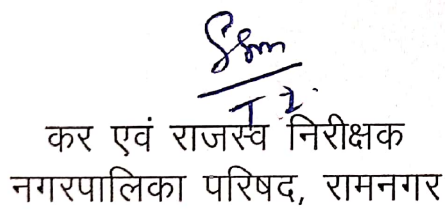 कर एवं राजस्व निरीक्षक
नगरपालिका परिषद, रामनगर